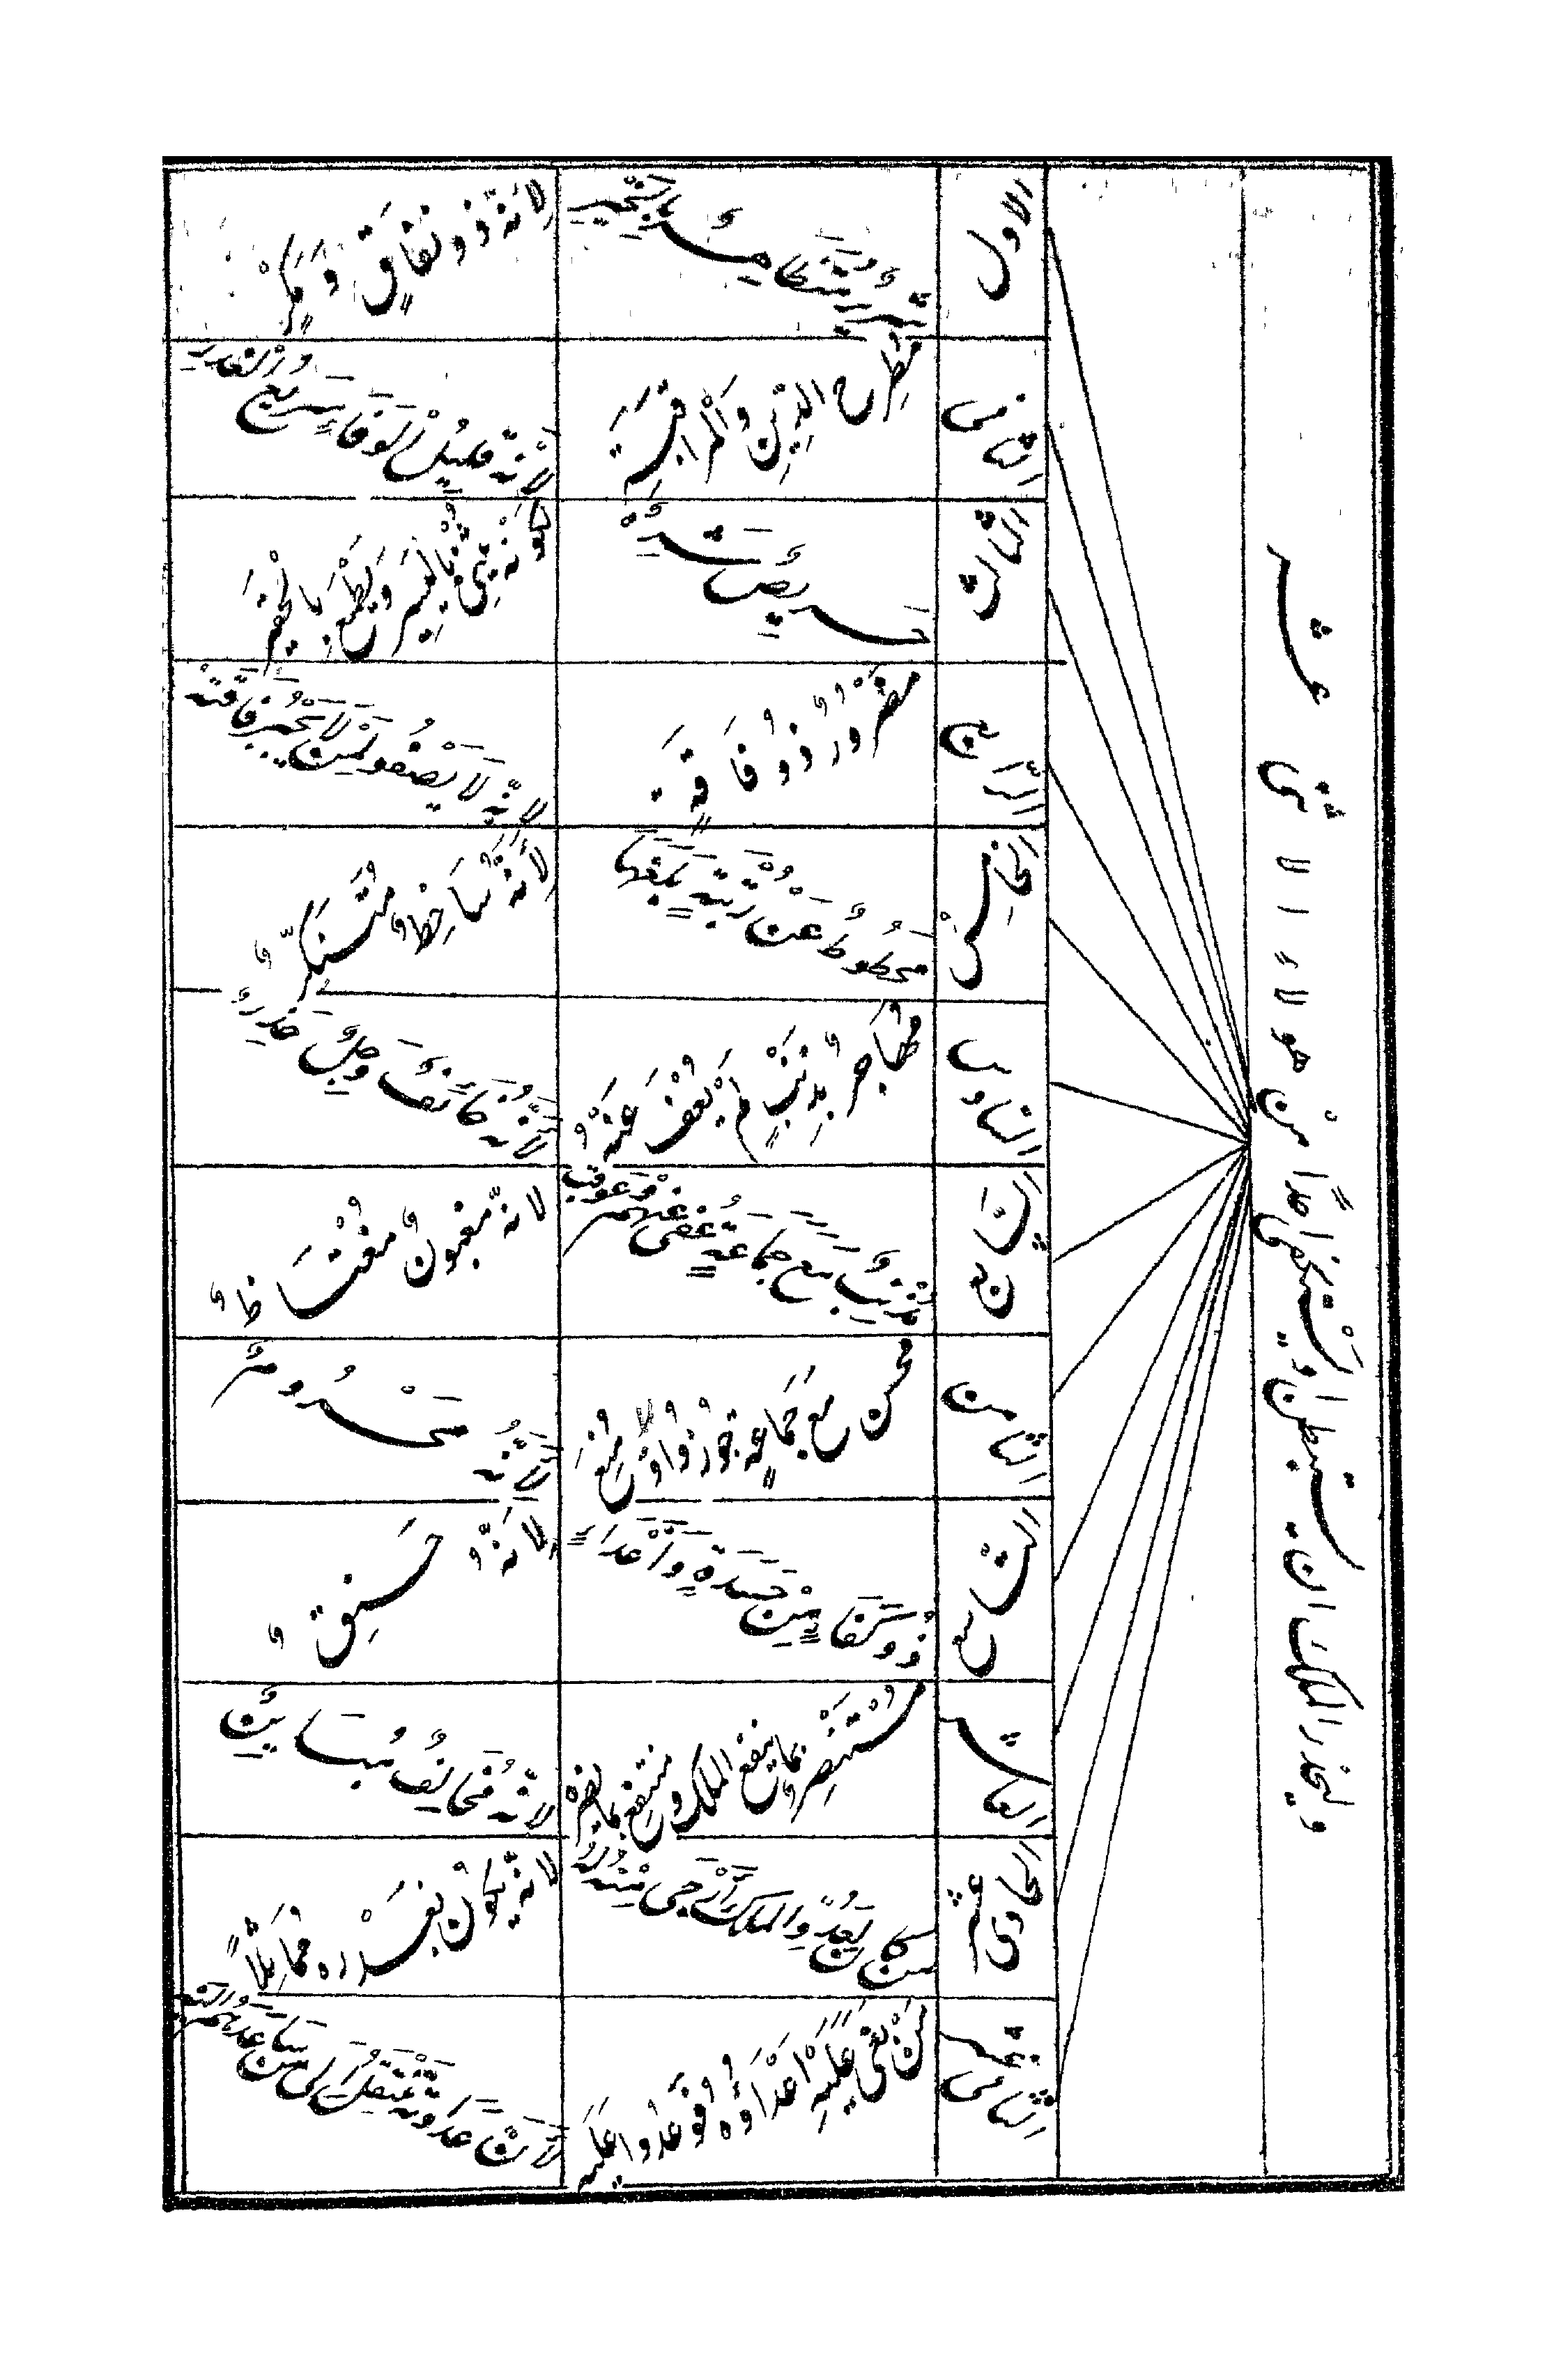 وليحذر الملك ان يستبطن ويستكفي احداً من هولاء الاثنى عشر
الاول
شرير يتنكا مسُ بالخير
لانه ذو نفاق وَمَكْر
الثاني
مطرح الدين والمراقبة
لانه قليل الوفاء سريع الغدر
الثالث
حريص شره
لكونه يبيع باليسير ويطمع بالحقير
الرابع
مضرور ذو فاقة
لانه لا يصفو لمن لا يجبر فاقته
الخامس
محطوط عن رتبة بلغها
لانه ساخط متنكر
السادس
مهاجر بذنب لم يعف عنه
لانه خائف وجل حذر
السابع
مذنب مع جماعة عفي عنهم وعوقب
لانه مغبون مغتاظ
الثامن
محسن مع جماعة جوزوا ومنع
لانه محروم
التاسع
ذو كفاية من حسدة واعداء
لانه حنق
العاشر
مستنصر بما ينفع الملك ومنتفع بما يضره
لانه مخالف مباين
الحادي عشر
من كان لعدو الملك ارجى منه له
لانه يكون بغدره ممايلاً
الثاني عشر
من بغى عليه اعداؤه فوعدوا عليه
لان عداوته تنتقل الى من ساعدهم اليه